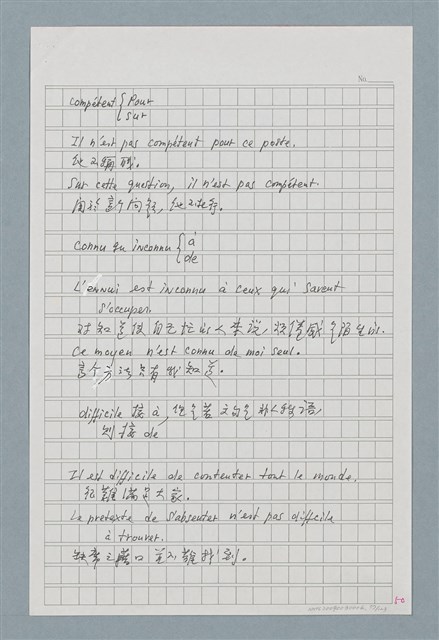 No.
compétent { Pour
sur
Il n'est pas compétent pour ce poste.
他不稱職。
Sur cette question, il n'est pas compétent.
關於這个问題,他不在行。
connu ou inconnu { à
de
L'ennui est inconnu à ceux qui savent
s'occuper.
对知道使自己忙的人來說,
Ce moyen n'est connu de moi seul.
這个方法只有我知道。
difficile 接 à,
則接 de
Il est difficile de contenter tout le monde.
很難滿足大家。
Le prétexte de s'absenter n'est pas difficile
à trouver.
缺席之藉口並不難找到。
50